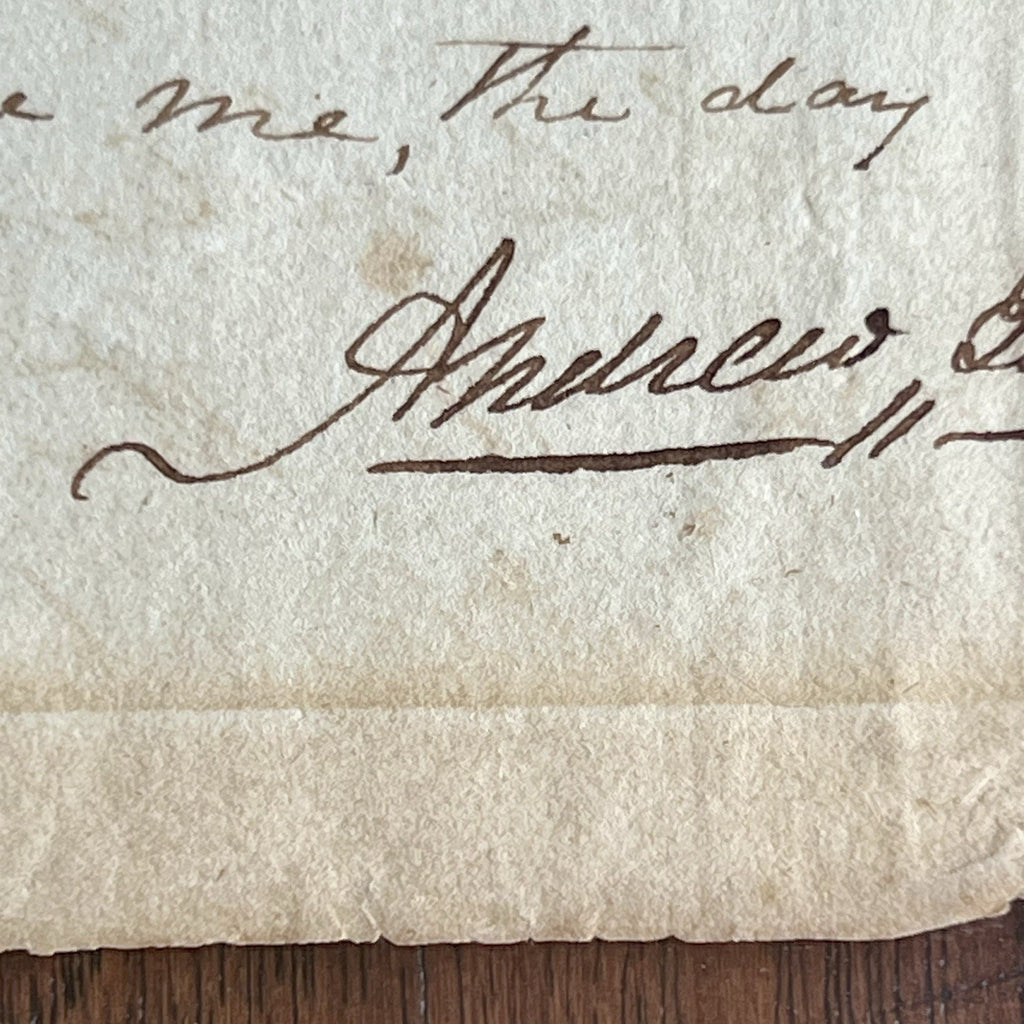 me, the day
Andrew